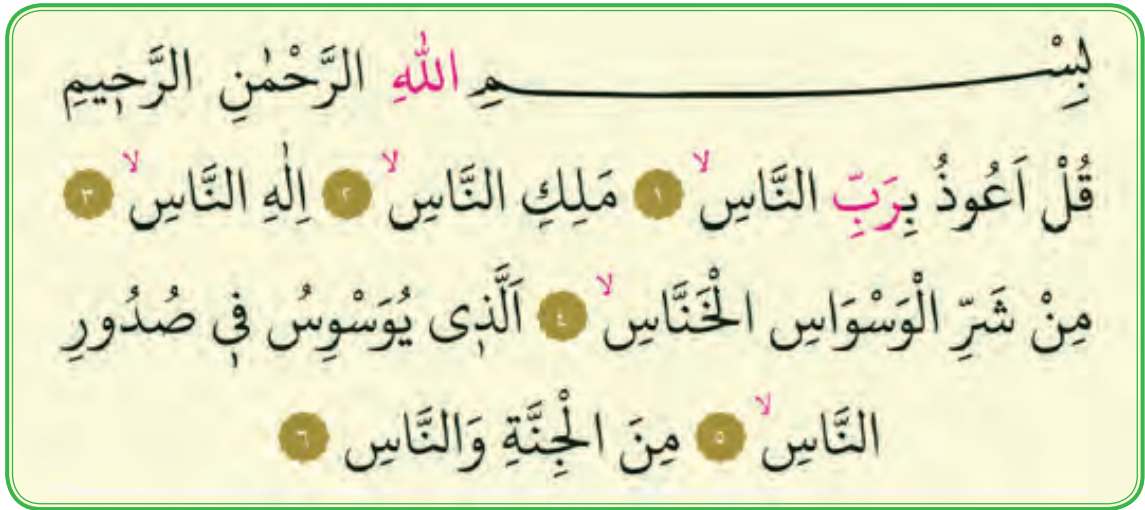 بِسْمِ اللّٰهِ الرَّحْمٰنِ الرَّح۪يمِ
قُلْ اَعُوذُ بِرَبِّ النَّاسِۙ ١ مَلِكِ النَّاسِۙ ٢ اِلٰهِ النَّاسِۙ ٣
مِنْ شَرِّ الْوَسْوَاسِ الْخَنَّاسِۙ ٤ اَلَّذ۪ى يُوَسْوِسُ ف۪ى صُدُورِ
النَّاسِۙ ٥ مِنَ الْجِنَّةِ وَالنَّاسِ ٦